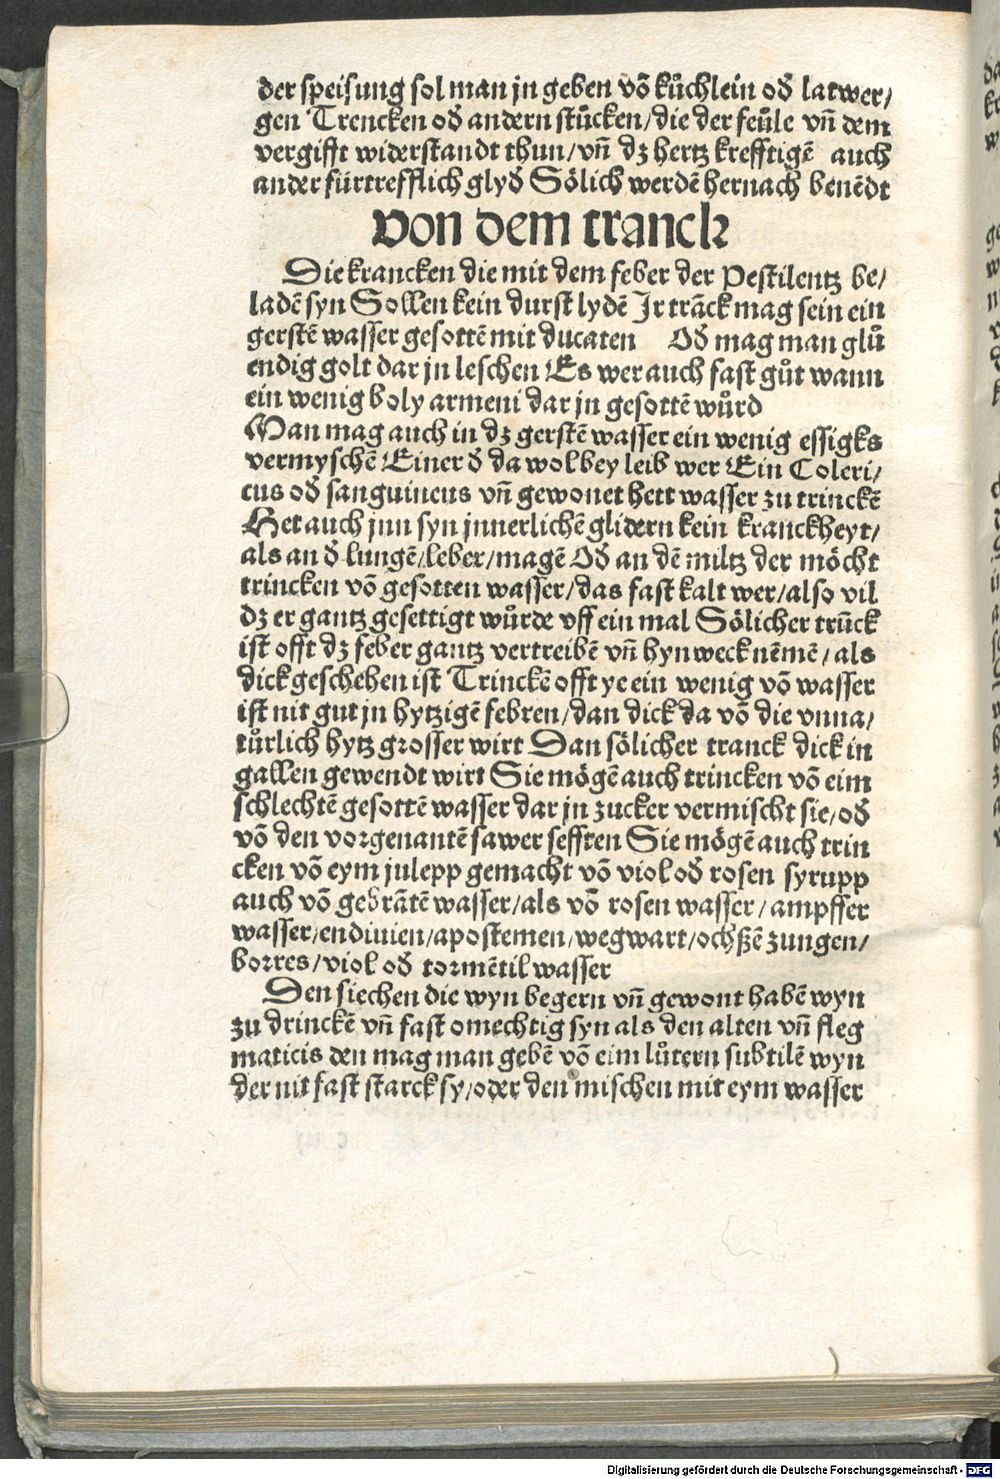 der speisung sol man jn geben võ kůchlein oð latwer/
gen Trencken oð andern stücken/die der feüle vñ dem
vergifft widerstandt thun/vñ dz hertz krefftigẽ auch
ander fürtrefflich glyð Sölich werdẽ hernach benẽdt
von dem tranck
Die krancken die mit dem feber der Pestilentz be/
ladẽ syn Sollen kein durst lydẽ Jr trãck mag sein ein
gerstẽ wasser gesottẽ mit ducaten Oð mag man glů
endig golt dar jn leschen Es wer auch fast gůt wann
ein wenig boly armeni dar jn gesottẽ wůrd
Man mag auch in dz gerstẽ wasser ein wenig essigks
vermyschẽ Einer ð da wol bey leib wer Ein Coleri/
cus oð sanguineus vñ gewonet hett wasser zu trinckẽ
Het auch jnn syn jnnerlichẽ glidern kein kranckheyt/
als an ð lungẽ/leber/magẽ Oð an dẽ miltz der möcht
trincken võ gesotten wasser/das fast kalt wer/also vil
dz er gantz gesettigt wůrde vff ein mal Sölicher trũck
ist offt dz feber gantz vertreibẽ vñ hynweck nẽmẽ/als
dick geschehen ist Trinckẽ offt ye ein wenig võ wasser
ist nit gut jn hytzigẽ febren/dan dick da võ die vnna/
tůrlich hytz grosser wirt Dan sölicher tranck dick in
gallen gewendt wirt Sie mögẽ auch trincken võ eim
schlechtẽ gesottẽ wasser dar jn zucker vermischt sie/oð
võ den vorgenantẽ sawer sefften Sie mögẽ auch trin
cken võ eym julepp gemacht võ viol oð rosen syrupp
auch võ gebrãtẽ wasser/als võ rosen wasser/ampffer
wasser/endiuien/apostemen/wegwart/ochßẽ zungen/
borres/viol oð tormẽtil wasser
Den siechen die wyn begern vñ gewont habẽ wyn
zu drinckẽ vñ fast omechtig syn als den alten vñ fleg
maticis den mag man gebẽ võ eim lůtern subtilẽ wyn
der nit fast starck sy/oder den mischen mit eym wasser
Digitalisierung gefördert durch die Deutsche Forschungsgemeinschaft - DFG